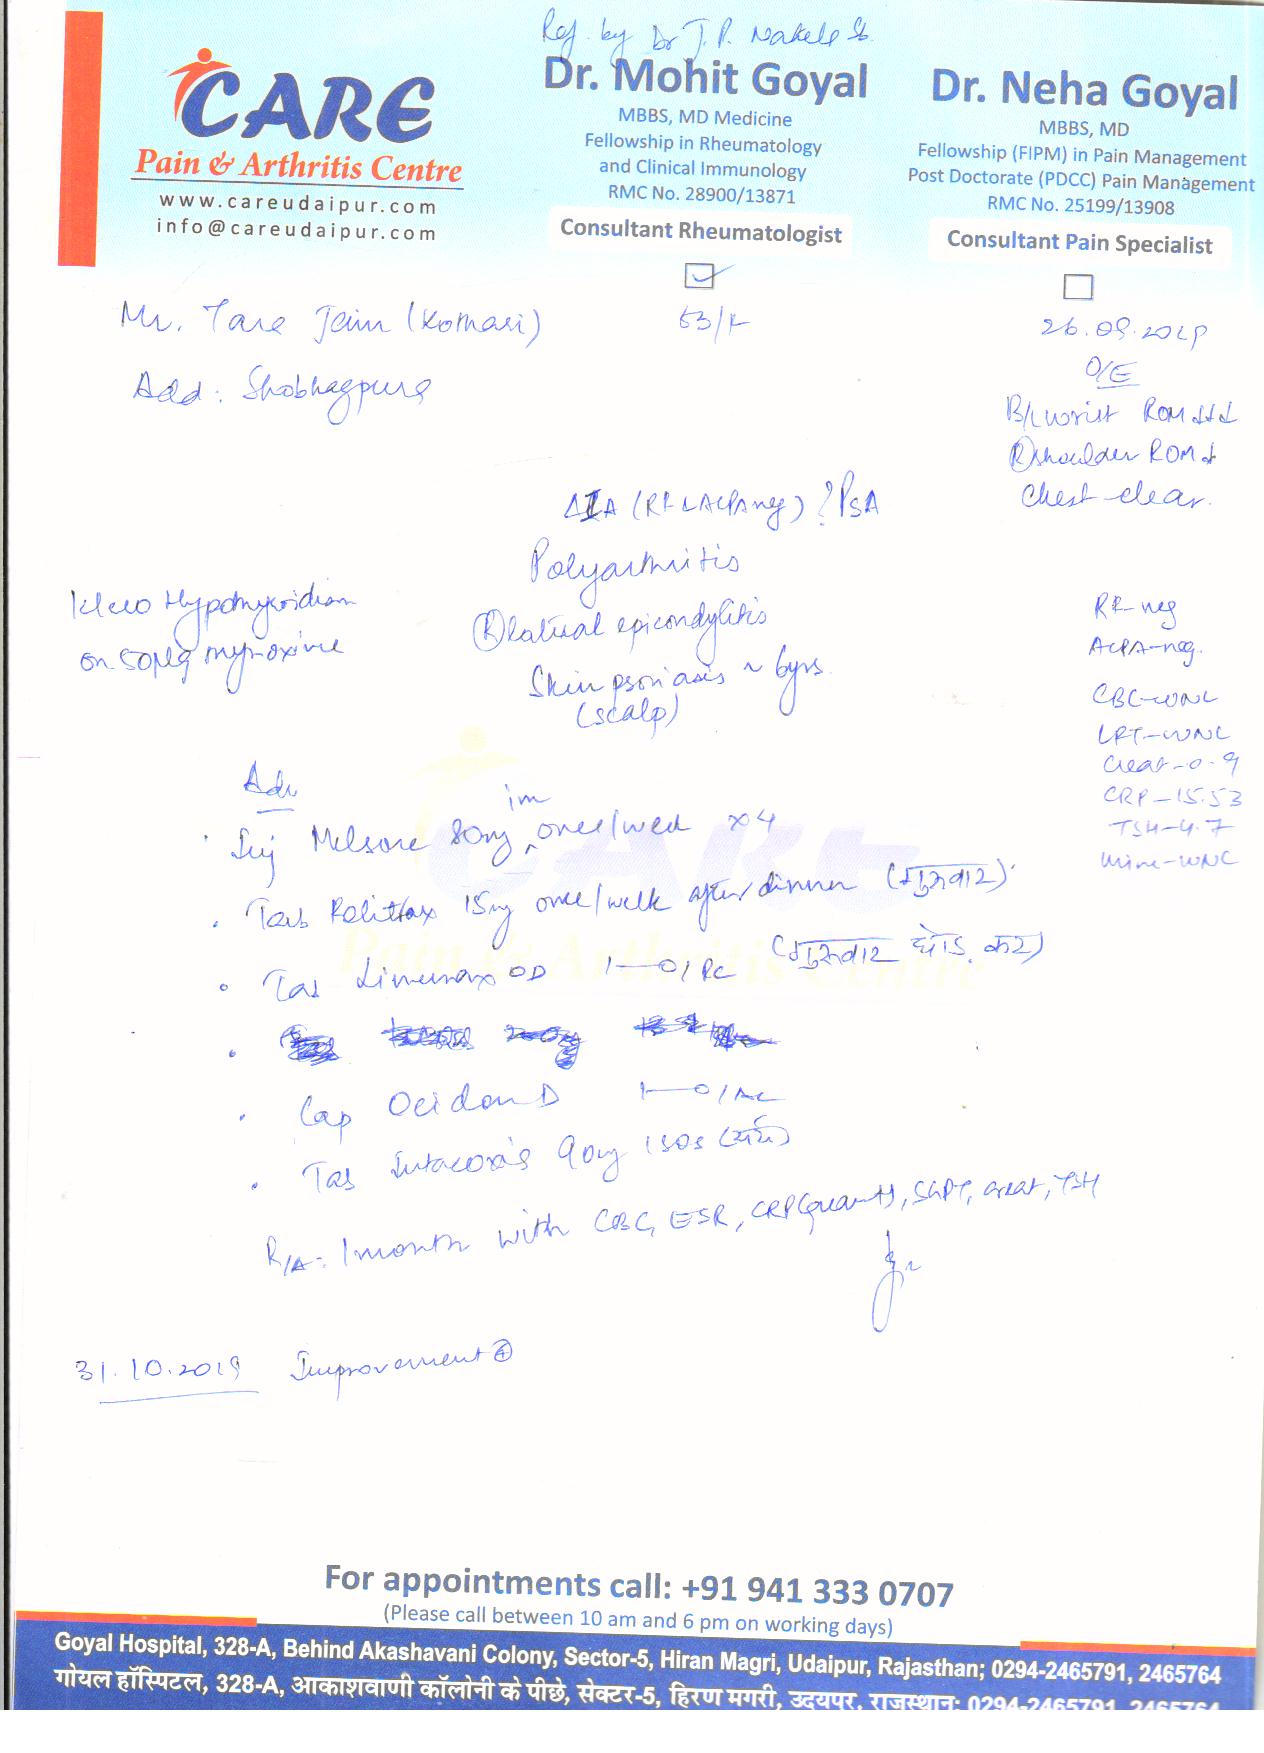 Ref. by Dr J.P.
CARE
Pain & Arthritis Centre
www.careudaipur.com
info@careudaipur.com
Dr. Mohit Goyal
MBBS, MD Medicine
Fellowship in Rheumatology
and Clinical Immunology
RMC No. 28900/13871
Consultant Rheumatologist
Dr. Neha Goyal
MBBS, MD
Fellowship (FIPM) in Pain Management
Post Doctorate (PDCC) Pain Management
RMC No. 25199/13908
Consultant Pain Specialist
Jain 53/F
26.09.2019
Add: Shobhagpura
O/E
B/L wrist ROM ↓↓↓
(R) shoulder ROM ↓
Chest clear.
Δ IA (RF & ACPA neg) ? PsA
Polyarthritis
(R) lateral epicondylitis
Skin psoriasis ~ 6yrs
(scalp)
K/c/o Hypothyroidism
on 50µg thyroxine
RF-neg
ACPA-neg.
CBC-WNL
LFT-WNL
Creat-0.9
CRP-15.53
TSH-4.7
Urine-WNL
Adv
Inj 80mg im once/week x4
Tab 15mg once/week after dinner (गुरुवार)
Tab OD 1—0/PC (गुरुवार छोड़ कर)
Cap D 1—0/AC
Tab 90mg 1SOS
R/A- 1month with CBC, ESR, CRP(quant), SGPT, creat, TSH
31.10.2019 Improvement ⊕
CARE
Pain & Arthritis Centre
For appointments call: +91 941 333 0707
(Please call between 10 am and 6 pm on working days)
Goyal Hospital, 328-A, Behind Akashavani Colony, Sector-5, Hiran Magri, Udaipur, Rajasthan; 0294-2465791, 2465764
गोयल हॉस्पिटल, 328-A, आकाशवाणी कॉलोनी के पीछे, सेक्टर-5, हिरण मगरी, उदयपुर, राजस्थान; 0294-2465791, 2465764